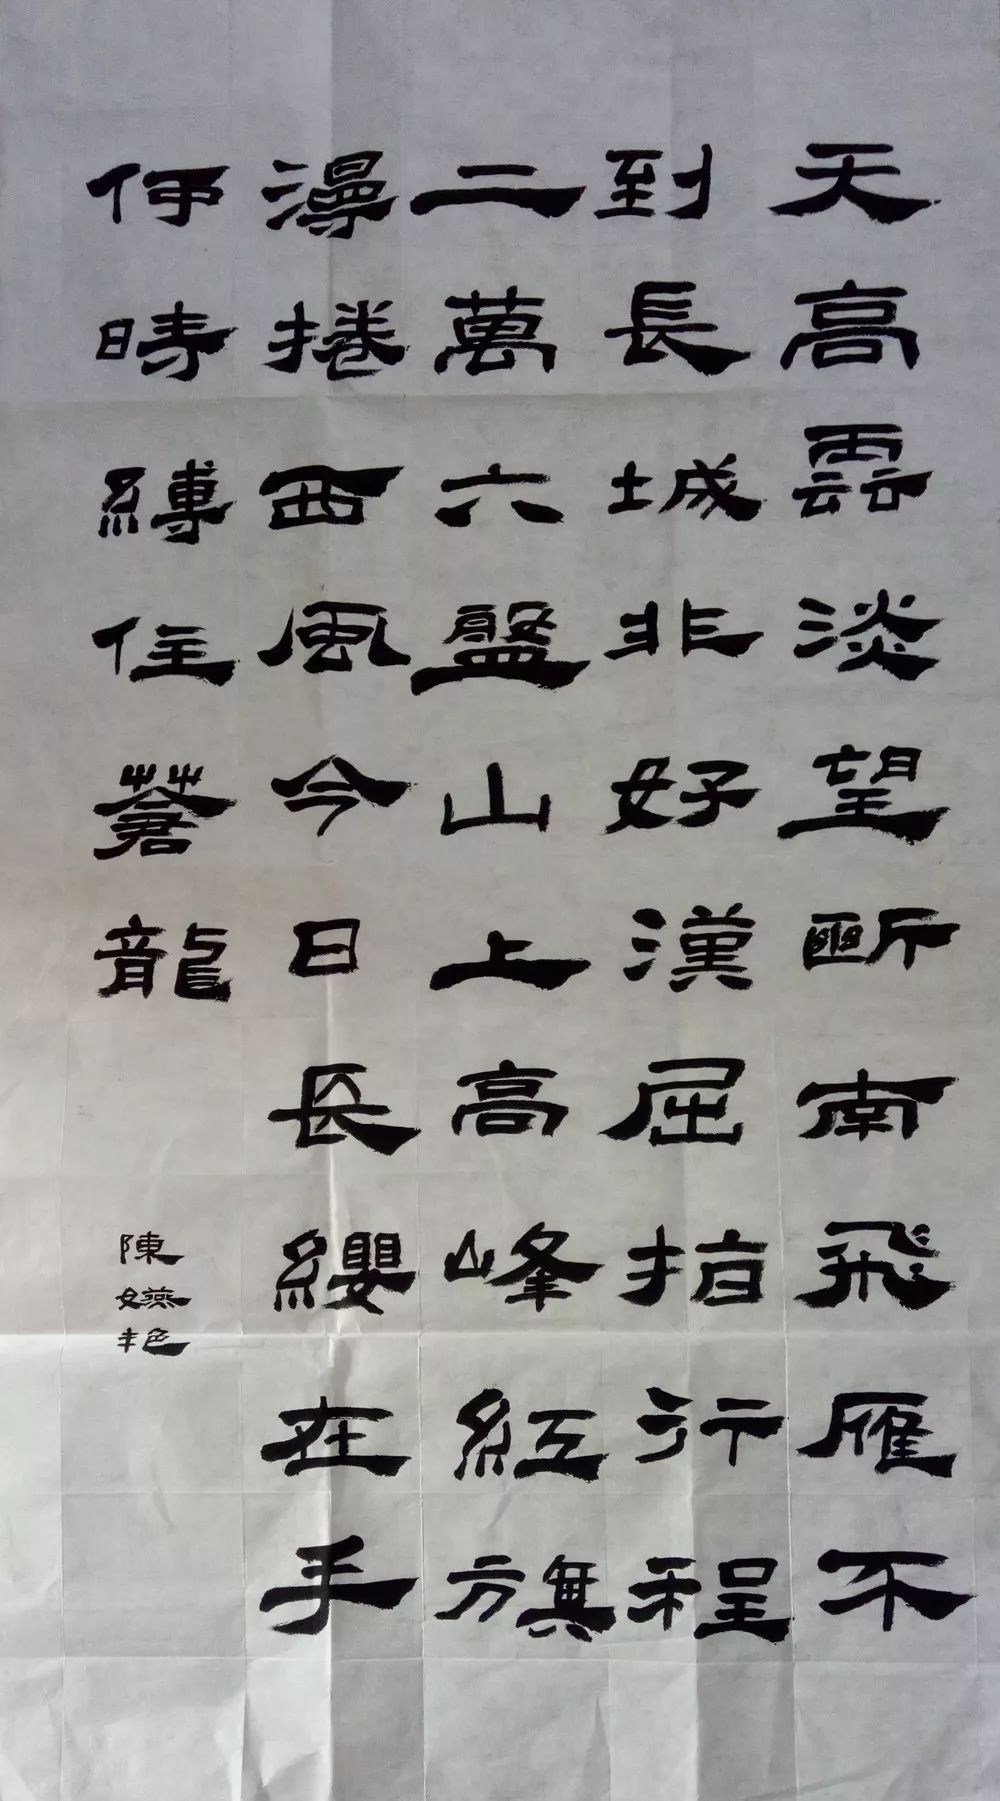 天高雲淡望斷南飛雁不
到長城非好漢屈指行程
二萬六盤山上高峰紅旗
漫捲西風今日長纓在手
何時縛住蒼龍
陳嬿艳